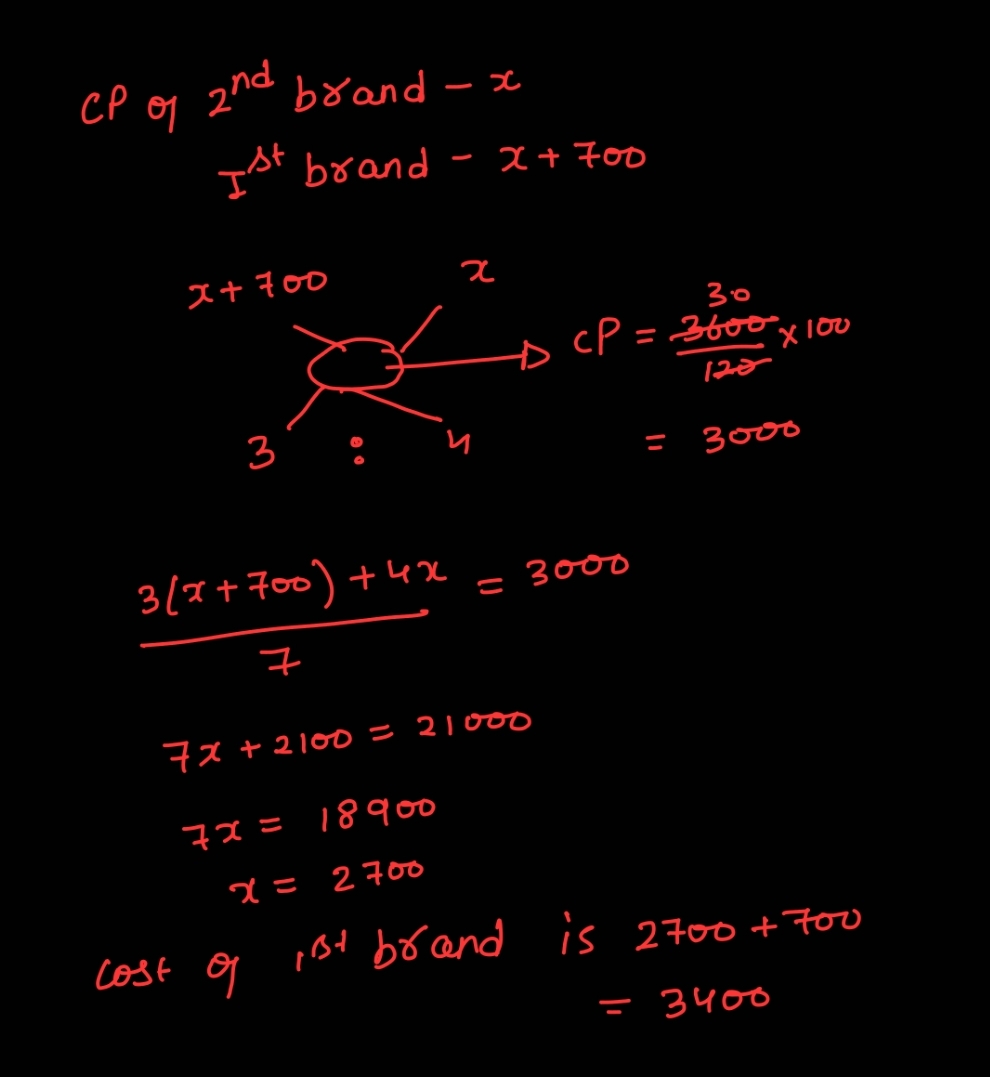 CP of 2nd brand - x
Ist brand - x + 700
x + 700
x
3 : 4
CP = 3600/120 x 100
30
= 3000
3(x + 700) + 4x / 7 = 3000
7x + 2100 = 21000
7x = 18900
x = 2700
cost of 1st brand is 2700 + 700
= 3400